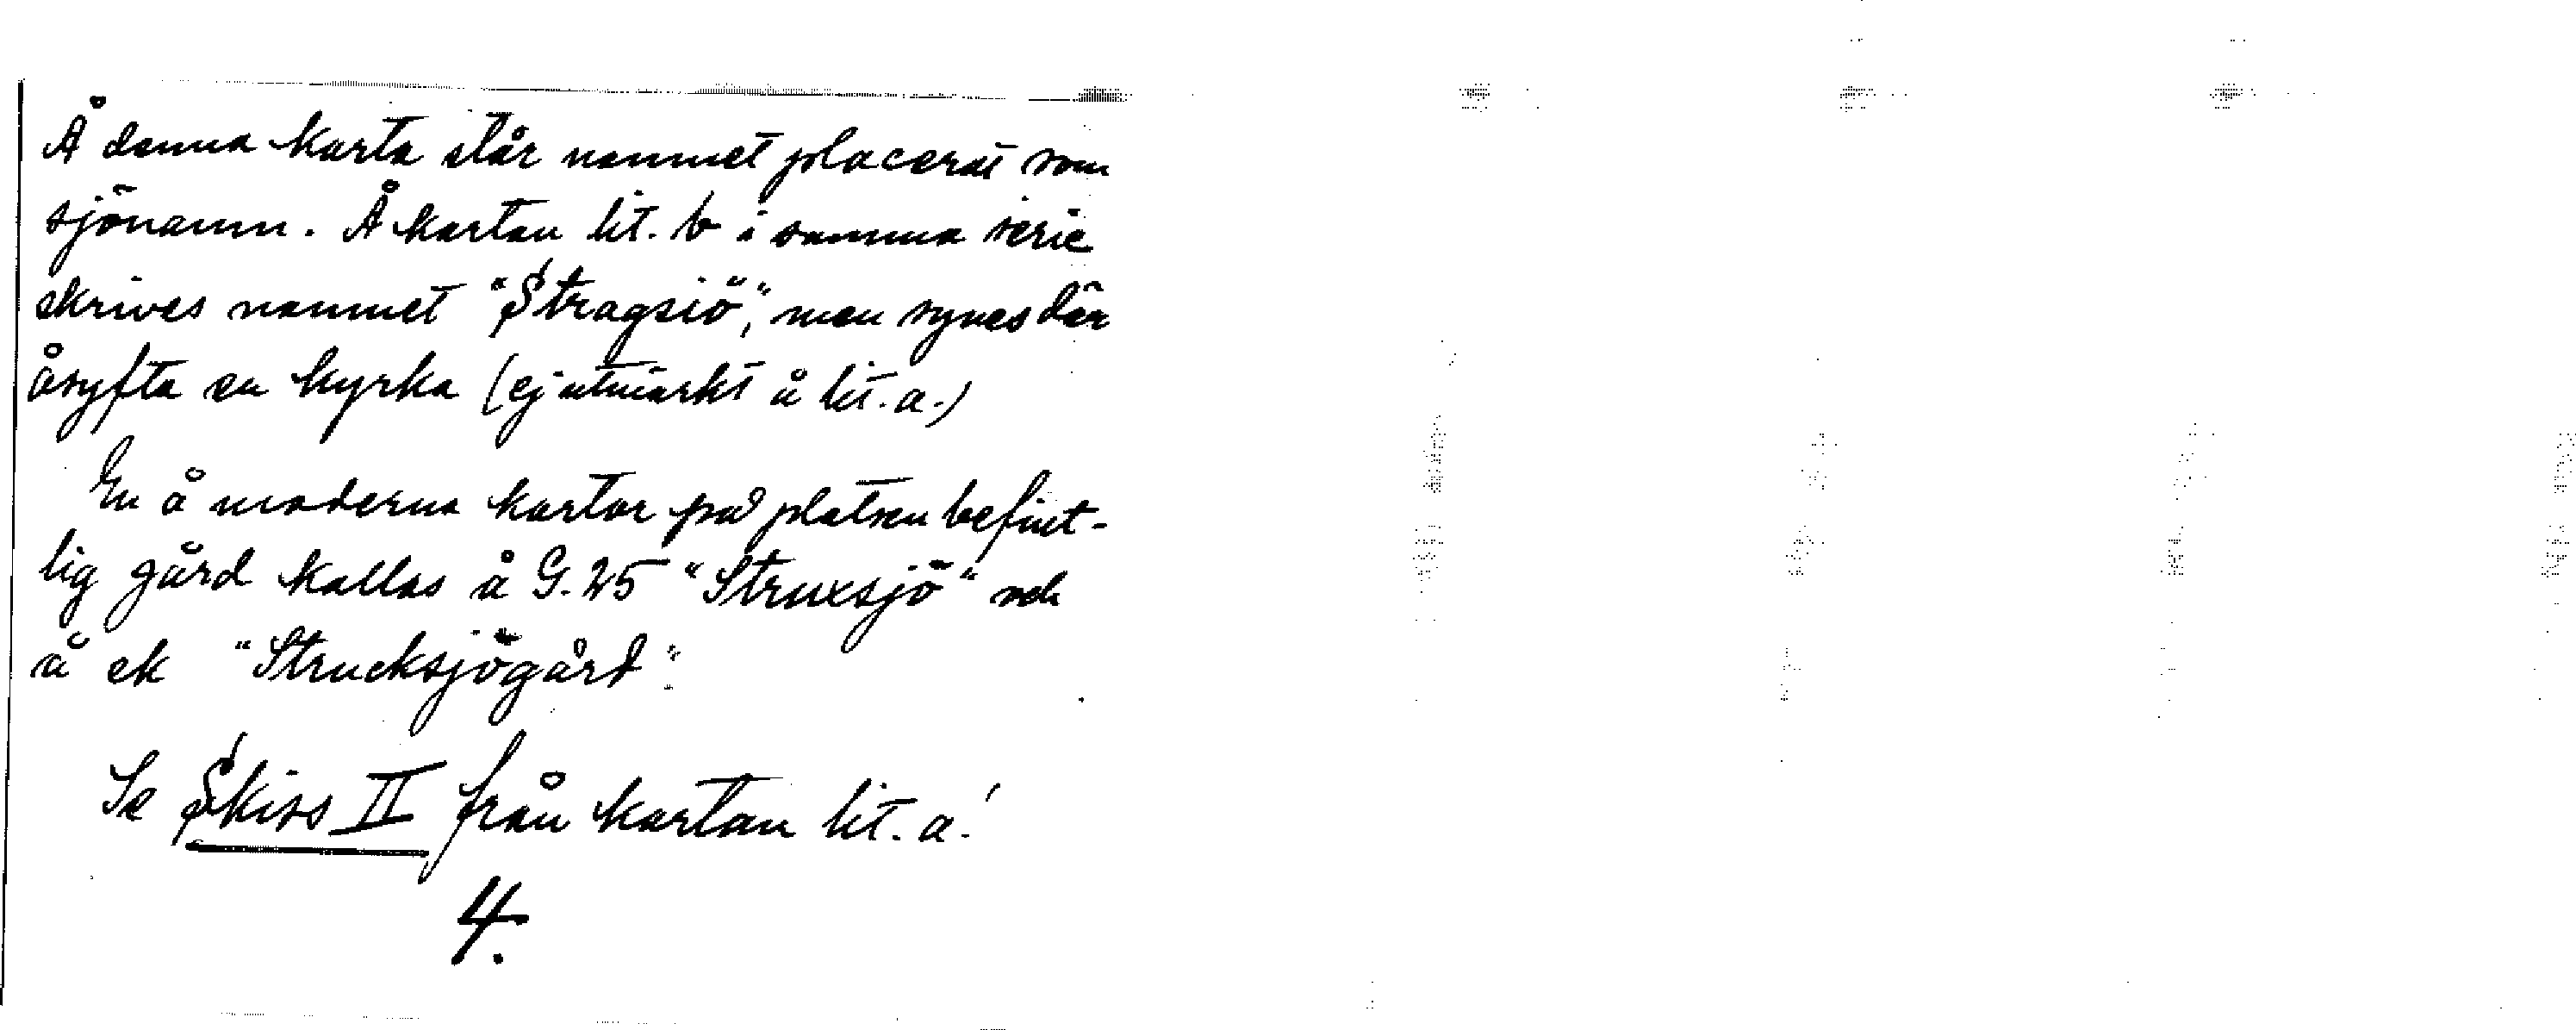 Å denna karta står namnet placerat som
sjönamn. Å kartan lit. b i samma serie
skrives namnet "Stragsiö", men synes där
åsyfta en kyrka (ej utmärkt å lit. a.)
En å moderna kartor på platsen befint-
lig gård kallas å G. 25 "Struxsjö" och
å ek "Strucksjögård".
Se Skiss II från kartan lit. a!
4.